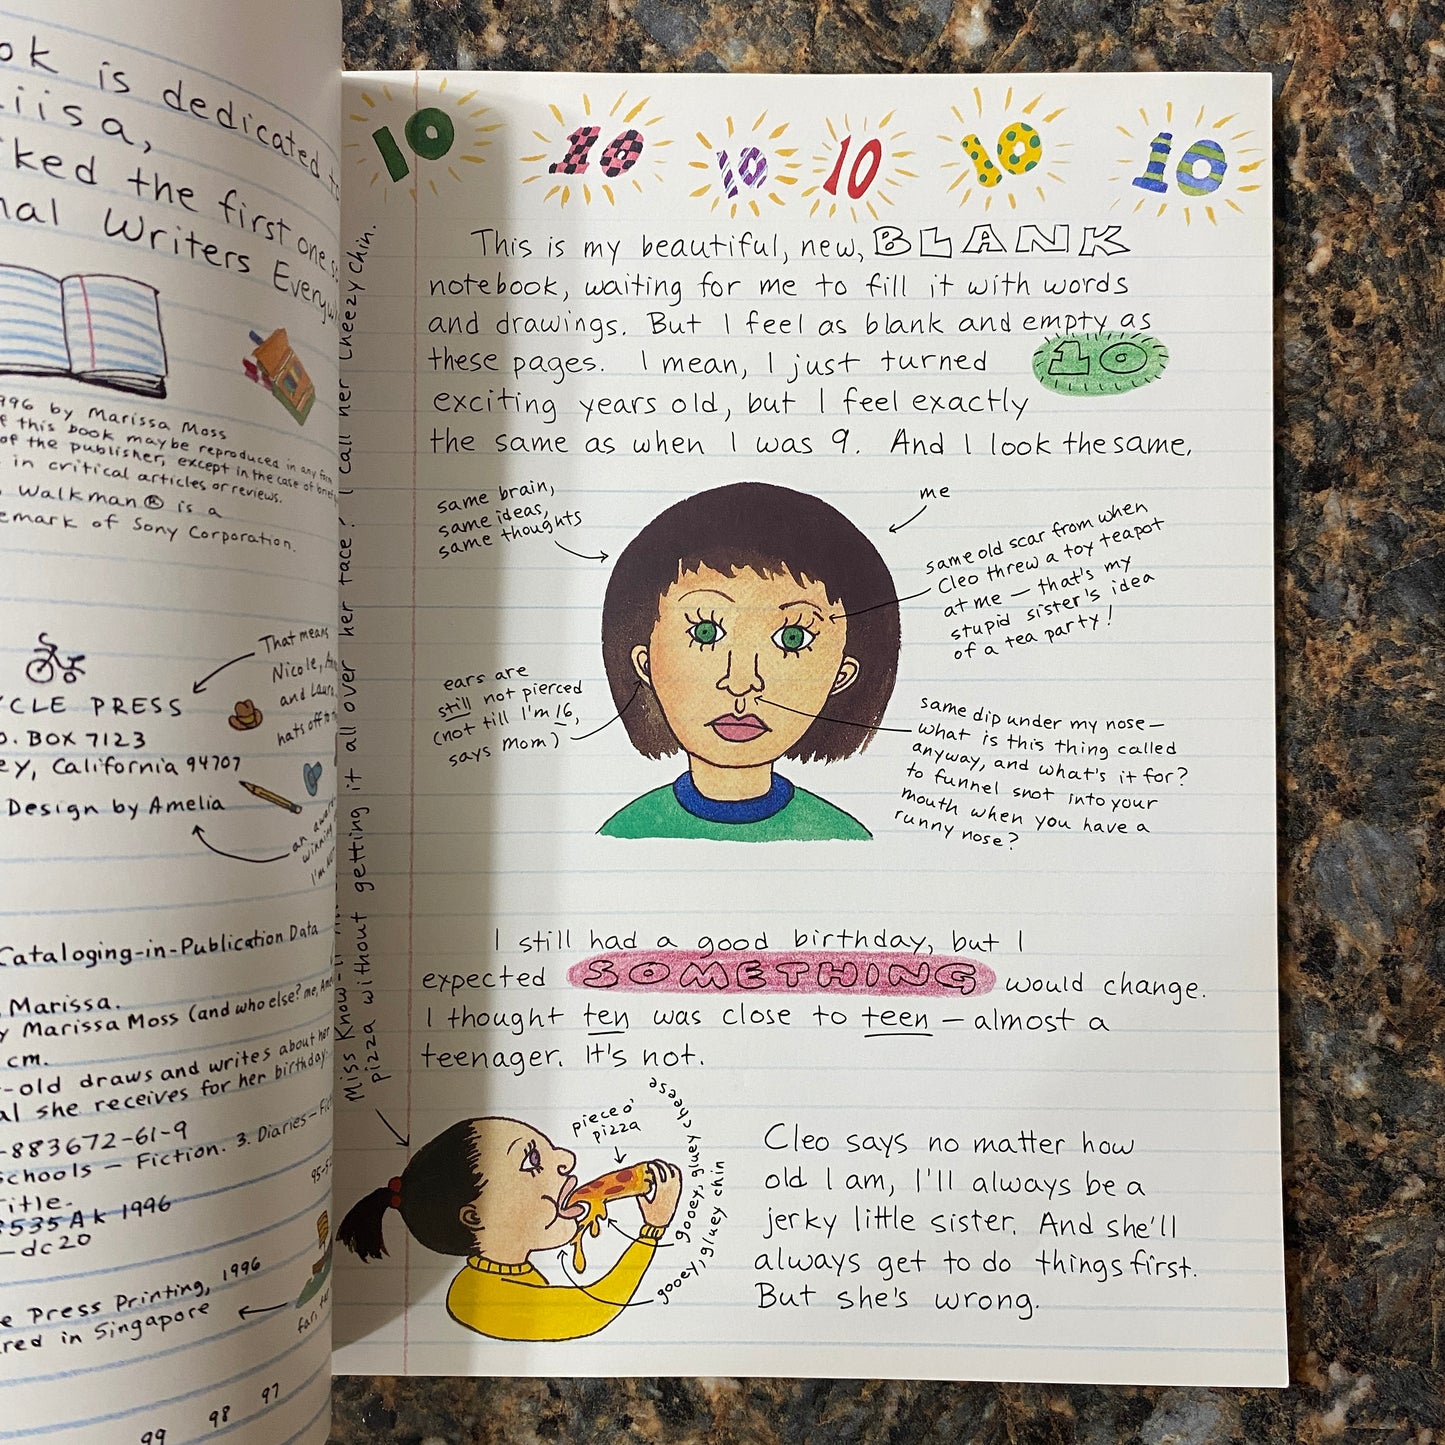 ok is dedicated to
iisa,
ked the first one
nal Writers Everyw
996 by Marissa Moss
f this book may be reproduced in any form
of the publisher, except in the case of brief
in critical articles or reviews.
Walkman® is a
emark of Sony Corporation.
That means
Nicole,
and Laura
hats off to
YCLE PRESS
O. BOX 7123
ey, California 94707
Design by Amelia
an award
winning
I'm
Cataloging-in-Publication Data
, Marissa.
y Marissa Moss (and who else? me, Am
cm.
-old draws and writes about her
al she receives for her birthday.
-883672-61-9
Schools – Fiction. 3. Diaries – Fic
itle.
8535 Ak 1996
– dc20
95-5
e Press Printing, 1996
red in Singapore
far
99 98 97
10 10 10 10 10 10
This is my beautiful, new, BLANK
notebook, waiting for me to fill it with words
and drawings. But I feel as blank and empty as
these pages. I mean, I just turned 10
exciting years old, but I feel exactly
the same as when I was 9. And I look the same,
same brain,
same ideas,
same thoughts
me
same old scar from when
Cleo threw a toy teapot
at me – that's my
stupid sister's idea
of a tea party!
ears are
still not pierced
(not till I'm 16,
says Mom)
same dip under my nose –
what is this thing called
anyway, and what's it for?
to funnel snot into your
mouth when you have a
runny nose?
I still had a good birthday, but I
expected SOMETHING would change.
I thought ten was close to teen – almost a
teenager. It's not.
Miss Know-it- pizza without getting it all over her face! I call her Cheezy Chin.
piece o'
pizza
gooey, gluey cheese
gooey, gluey chin
Cleo says no matter how
old I am, I'll always be a
jerky little sister. And she'll
always get to do things first.
But she's wrong.